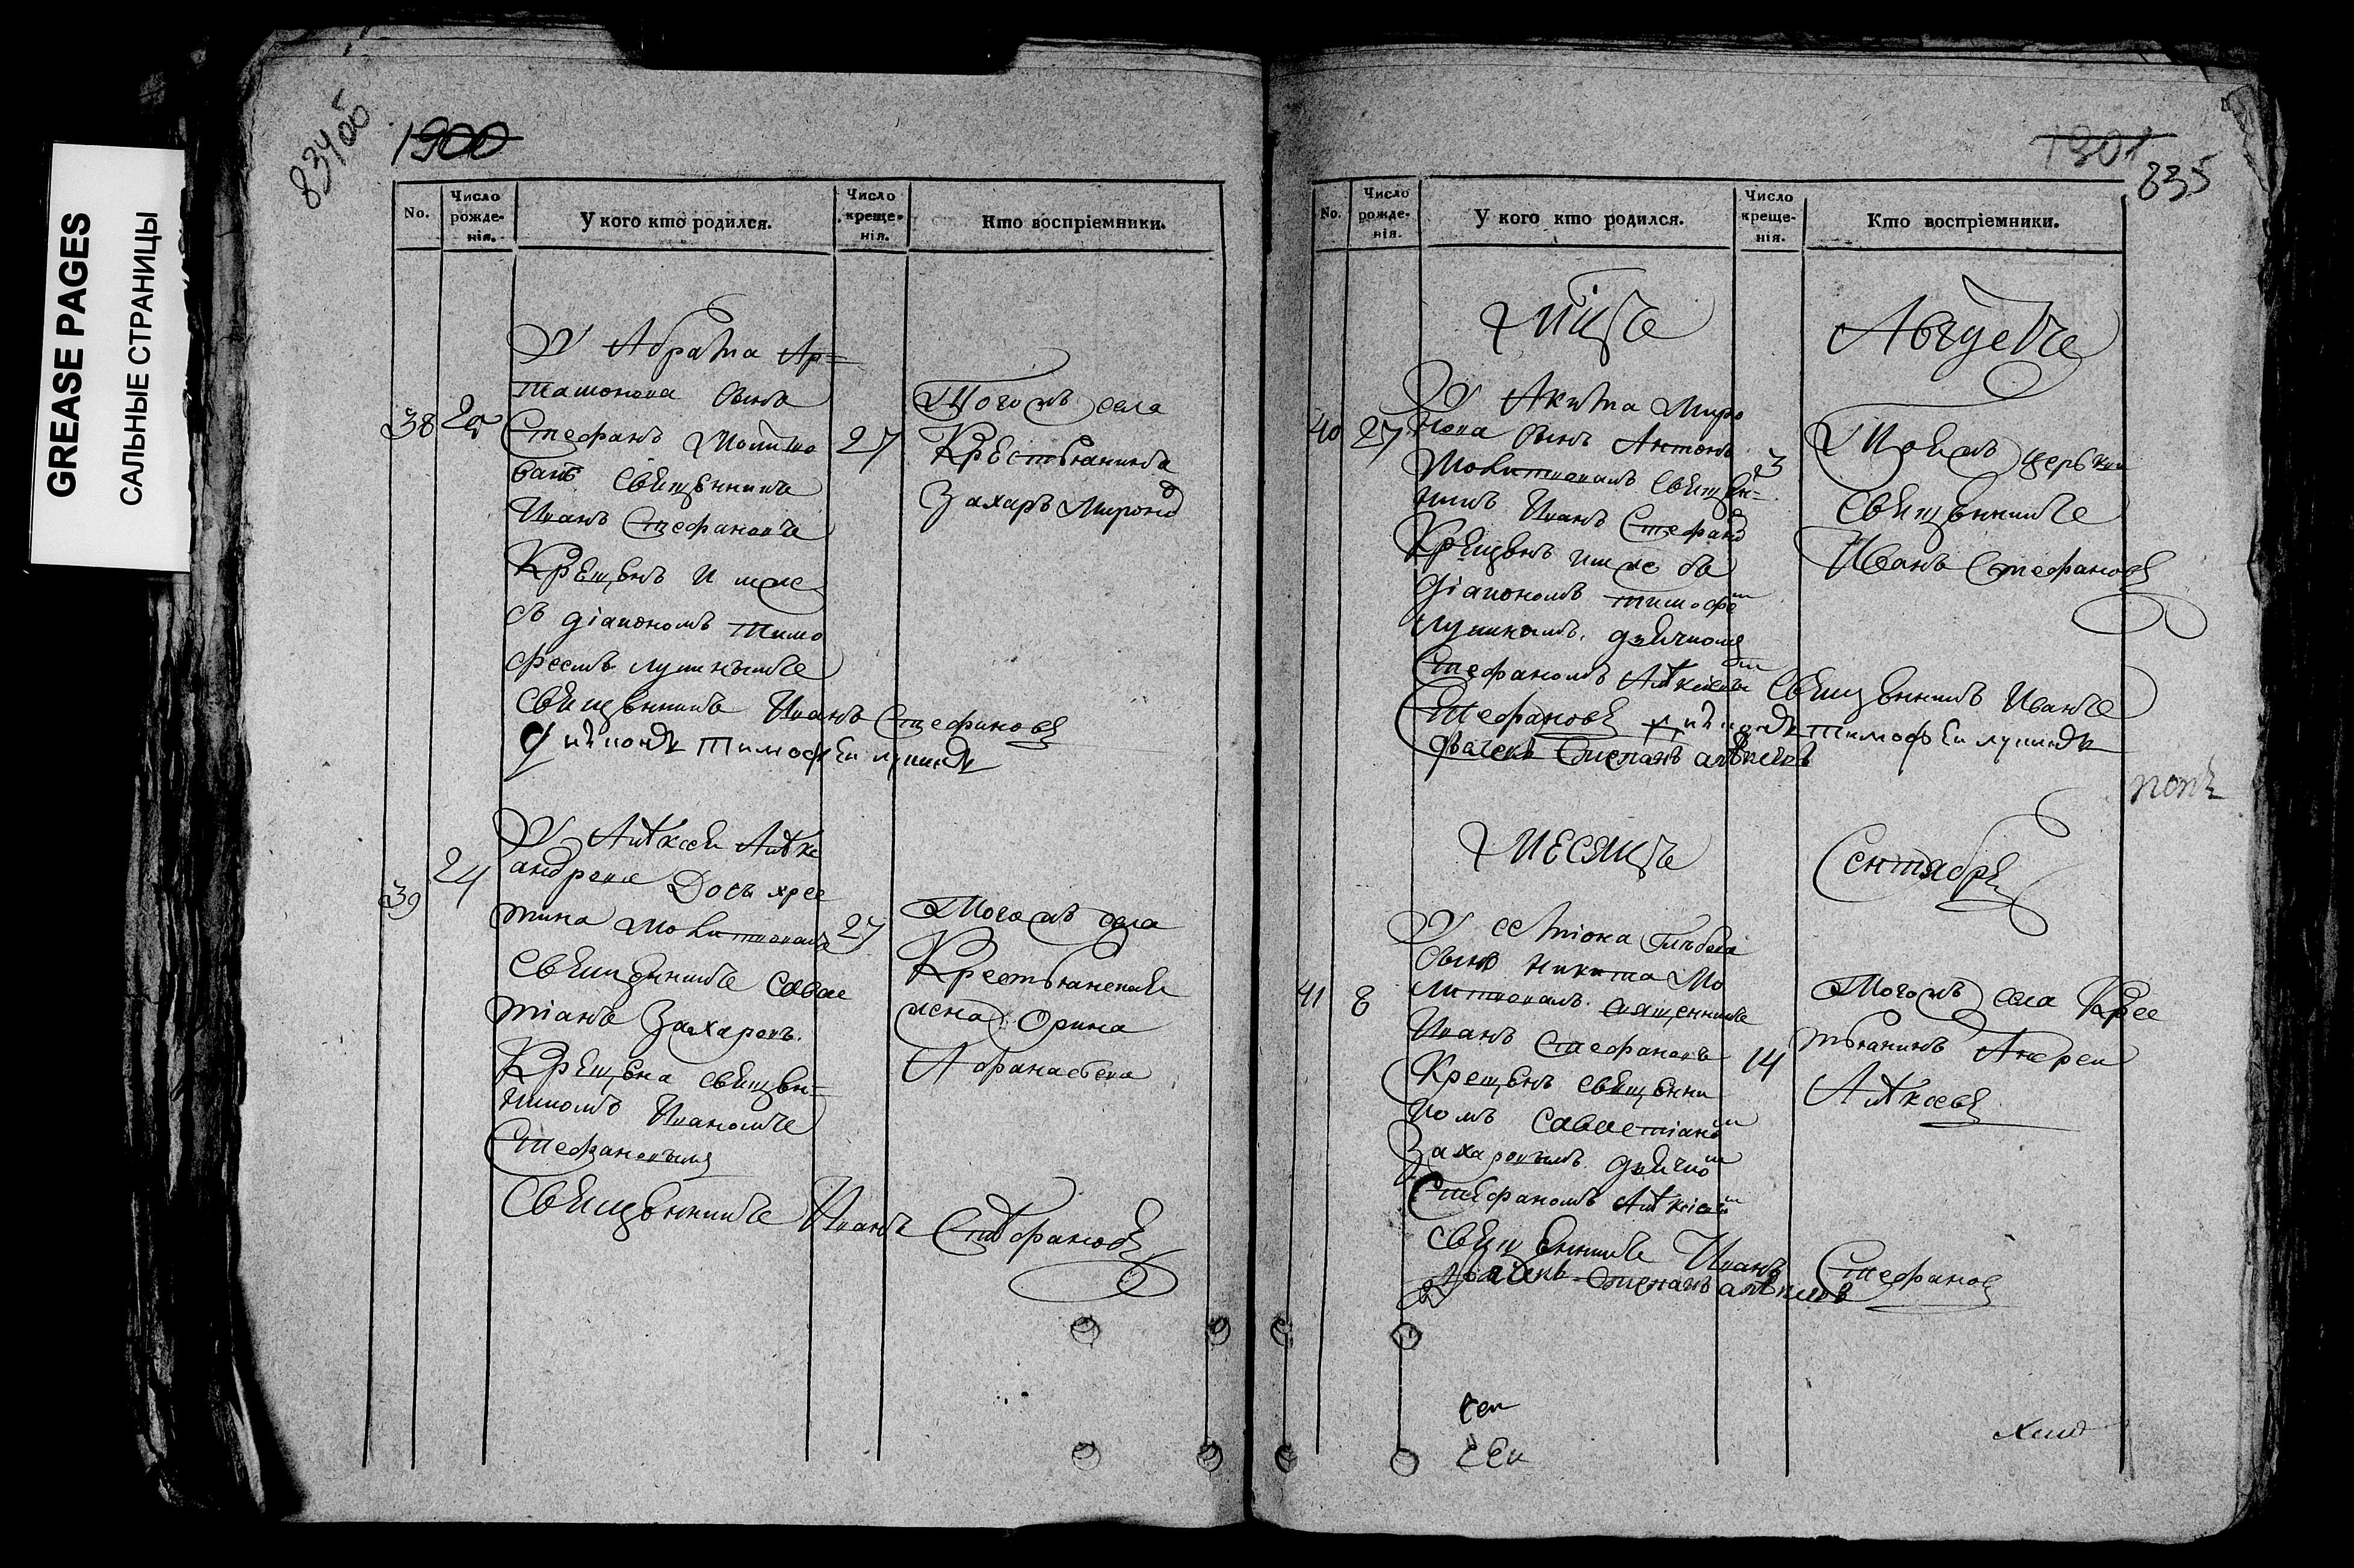 GREASE PAGES
САЛЬНЫЕ СТРАНИЦЫ
834об
1900
No.
Число рожде-нія.
У кого кто родился.
Число креще-нія.
Кто воспріемники.
У Абрама Ар-
тамонова сынъ
38
25
Стефанъ Молитво
валъ священникъ
Иванъ Стефановъ
Крещенъ и мле
съ діакономъ тимо
феемъ
священникъ Иванъ Стефановъ
тимофеи
27
Тогожъ села
Крестьянинъ
Захаръ Мироновъ
39
24
У Алексея Алек
андрова Дочь хрес
тина Молитвовалъ
священникъ савас
тіанъ Захаровъ.
Крещена священ-
никомъ Иваномъ
Стефановымъ
Священникъ Иванъ Стефановъ
27
Тогожъ села
Крестьянская
жена Орина
Афанасьева
1901
835
No.
Число рожде-нія.
У кого кто родился.
Число креще-нія.
Кто воспріемники.
Мцъ
Августъ
40
27
У Акима Миро
нова сынъ Антонъ
Молитвовалъ священ-
никъ Иванъ Стефановъ
Крещенъ имже съ
діакономъ тимофеем
дьячкомъ
Стефаномъ Алексеевым
священникъ Иванъ
Стефановъ
тимофеи
дьячекъ Степанъ алексеевъ
3
Тоежъ церькви
священникъ
Иванъ Стефановъ
попъ
Месяцъ
Сентябрь
41
8
У семіона Глебова
сынъ Никита Мо
литвовалъ священникъ
Иванъ Стефановъ
Крещенъ священни
комъ савастіаном
Захаровымъ дьячком
Стефаномъ Алексеевым
священникъ Иванъ Стефановъ
дьячекъ Степанъ алексеевъ
14
Тогожъ села Крес
тьянинъ Андреи
Алексеевъ